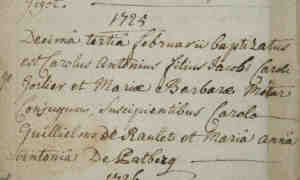 1725
Decima tertia februarii baptizatus
est Carolus Antonius filius Jacobi Caroli
et Mariæ Barbaræ
Conjugum, Suscipientibus Carolo
Guillielmo de Raulet et Maria anna
Antonia De Palberg